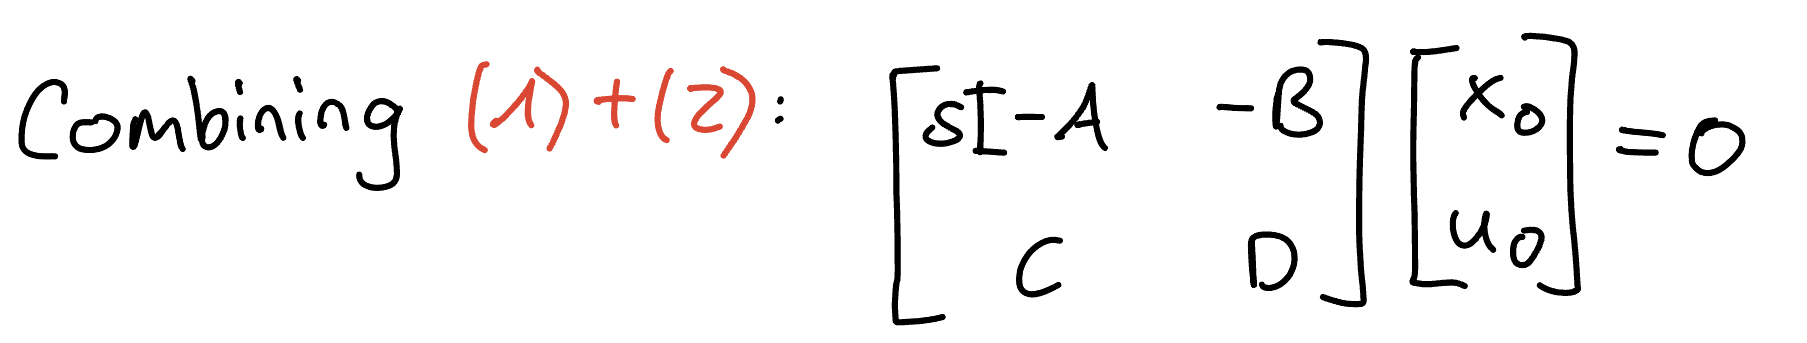 Combining (1)+(2): $\begin{bmatrix} sI-A & -B \\ C & D \end{bmatrix} \begin{bmatrix} x_0 \\ u_0 \end{bmatrix} = 0$